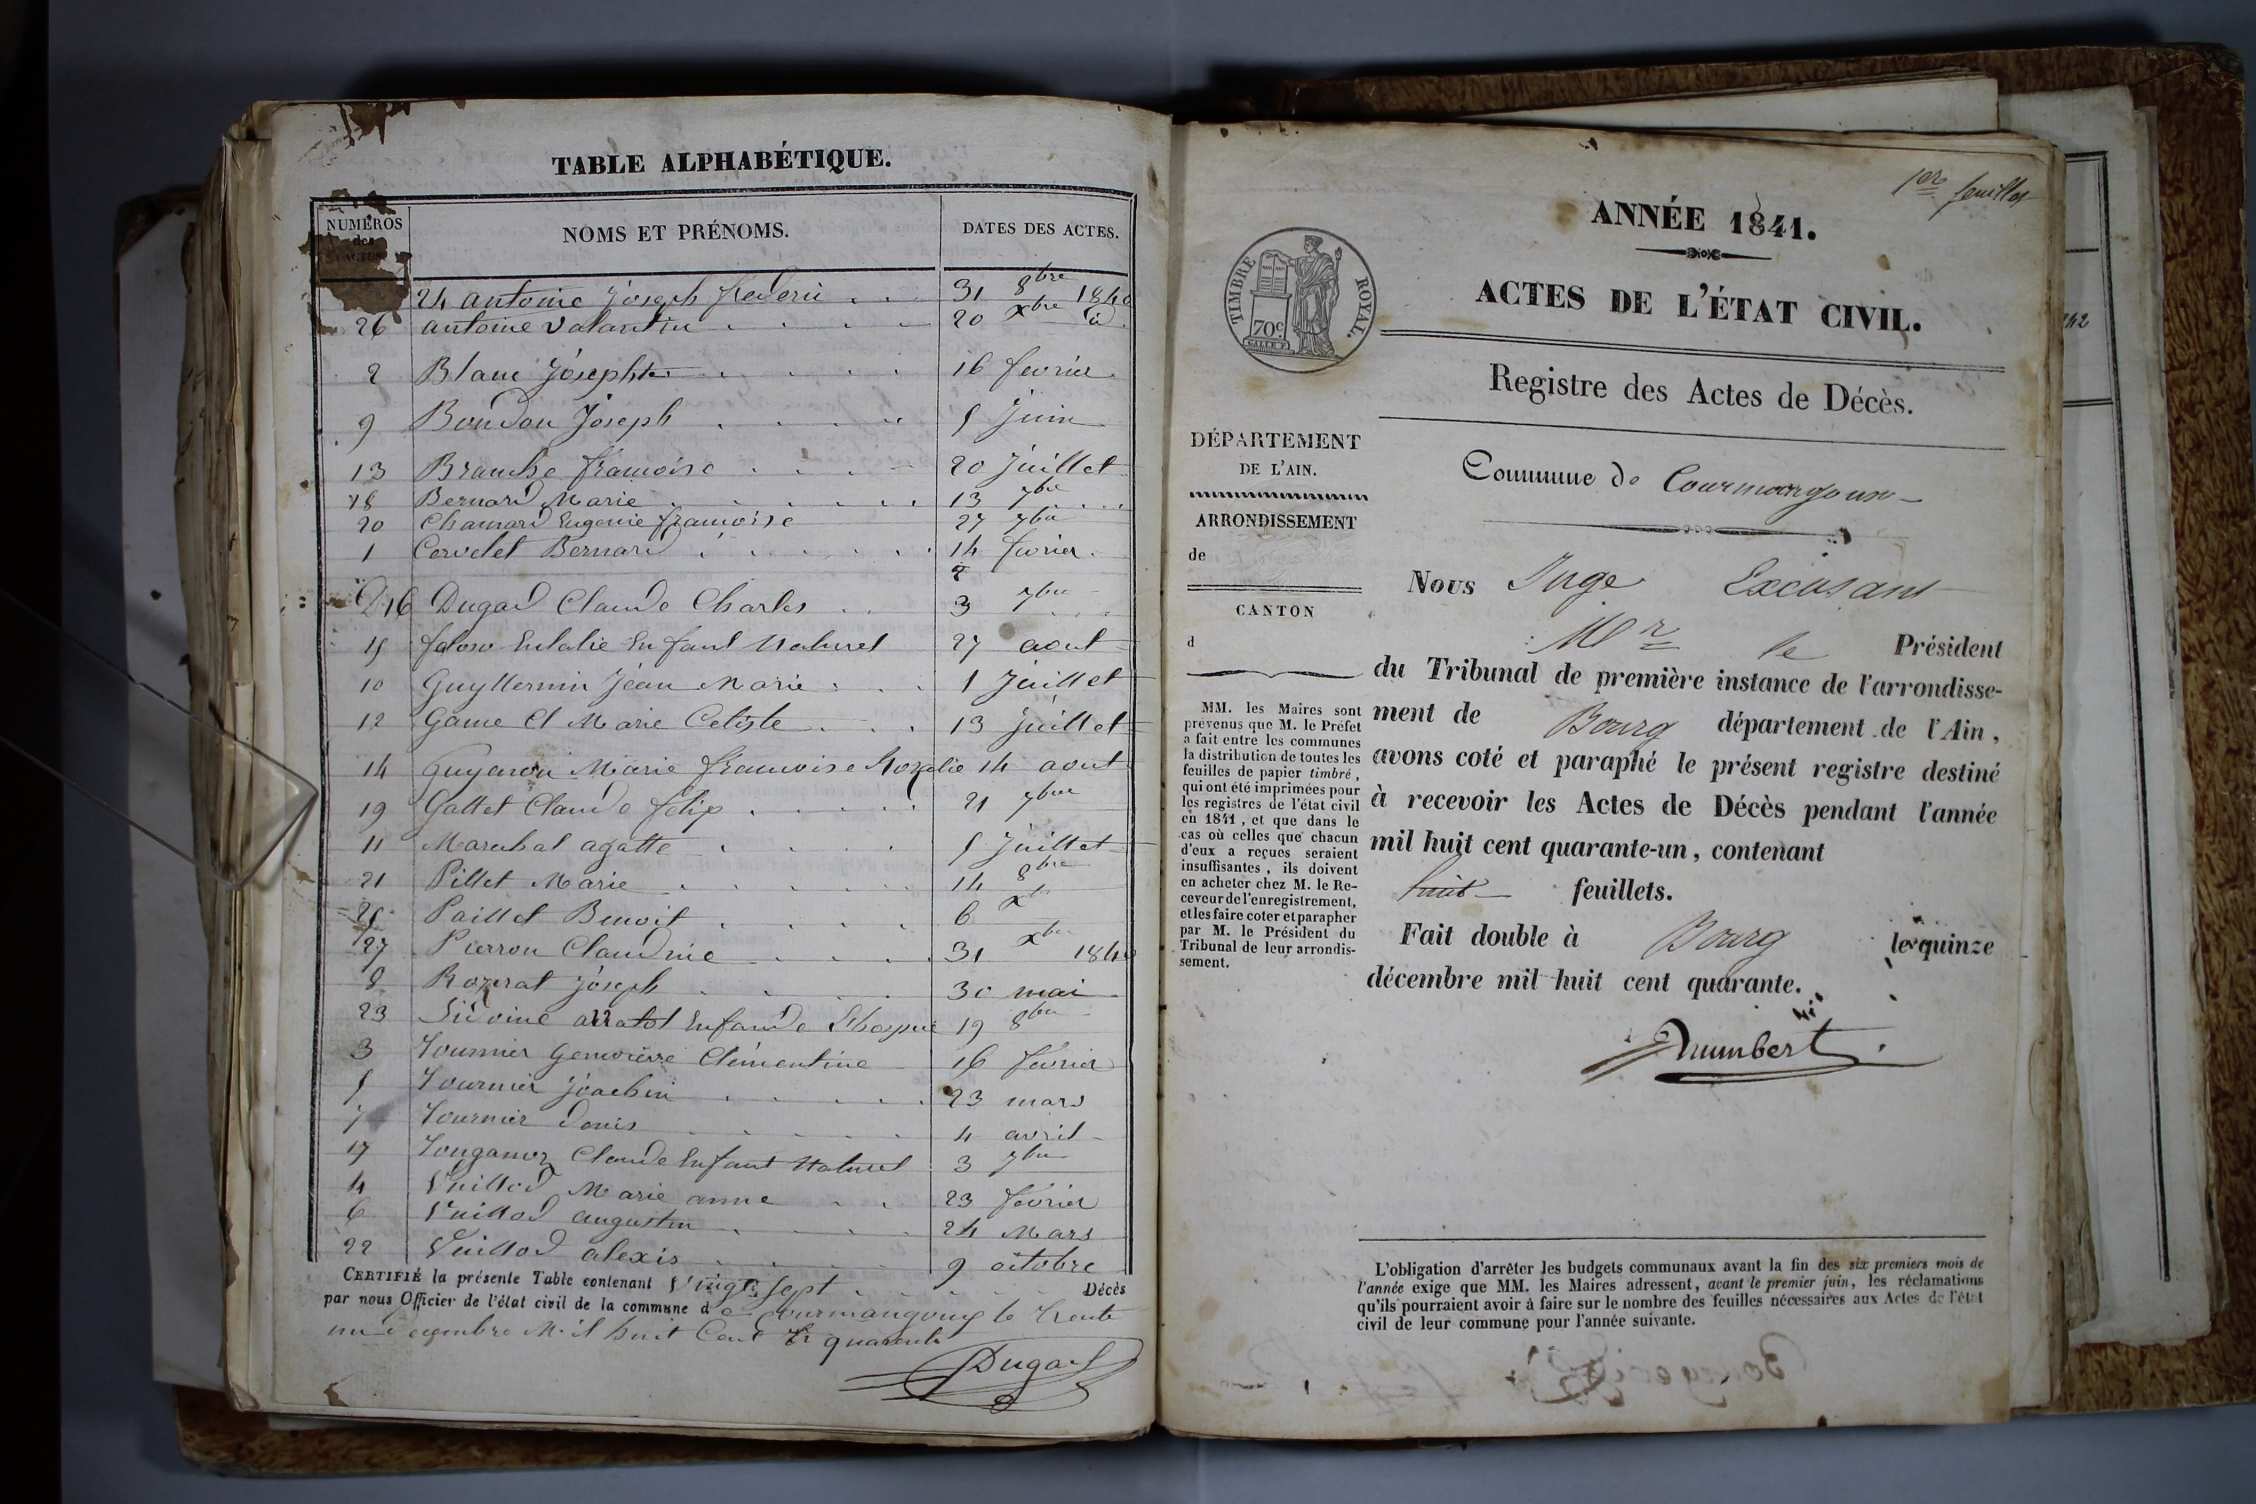 TABLE ALPHABÉTIQUE.
NUMÉROS des ACTES NOMS ET PRÉNOMS. DATES DES ACTES.
24 antoine Joseph frederic 31 8bre 1840
26 antoine valantin 20 xbre id
2 Blanc Josephte 16 fevrier
9 Boudon Joseph 5 Juin
13 Branche francoise 20 Juillet
18 Bernard Marie 13 7bre
20 Chanard Eugenie francoise 27 7bre
1 Cervelet Bernard 14 fevrier
16 Dugad Claude Charles 3 7bre
15 Eulalie Enfant Naturel 27 aout
10 Guyllermin Jean Marie 1 Juillet
12 Game Cl Marie Celiste 13 Juillet
14 Guyenon Marie francoise Rozalie 14 aout
19 Gallet Claude felix 21 7bre
11 Marechal agatte 5 Juillet
21 Pillet Marie 14 8bre
25 Paillet Benoit 6 xbre
27 Pierron Claudine 31 xbre 1840
8 Rozerat Joseph 30 mai
23 19 8bre
3 Tournier Genevieve Clémentine 16 fevrier
5 Tournier Joachin 23 mars
7 Tournier Denis 4 avril
17 Claude Enfant Naturel 3 7bre
4 Vuillod Marie anne 23 fevrier
6 Vuillod augustin 24 Mars
22 Vuillod alexis 9 octobre
CERTIFIÉ la présente Table contenant Vingt sept Décès
par nous Officier de l'état civil de la commune de Courmangoux le trente
un decembre Mil huit Cent quarante
Dugad
1er feuillet
ANNÉE 1841.
ACTES DE L'ÉTAT CIVIL.
TIMBRE ROYAL.
70c
Registre des Actes de Décès.
DÉPARTEMENT
DE L'AIN.
ARRONDISSEMENT
de
CANTON
d
MM. les Maires sont
prévenus que M. le Préfet
a fait entre les communes
la distribution de toutes les
feuilles de papier timbré,
qui ont été imprimées pour
les registres de l'état civil
en 1841, et que dans le
cas où celles que chacun
d'eux a reçues seraient
insuffisantes, ils doivent
en acheter chez M. le Re-
ceveur de l'enregistrement,
et les faire coter et parapher
par M. le Président du
Tribunal de leur arrondis-
sement.
Commune de Courmangoux
Nous Juge Excusant
Mr le Président
du Tribunal de première instance de l'arrondisse-
ment de Bourg département de l'Ain,
avons coté et paraphé le présent registre destiné
à recevoir les Actes de Décès pendant l'année
mil huit cent quarante-un, contenant
huit feuillets.
Fait double à Bourg le quinze
décembre mil huit cent quarante.
L'obligation d'arrêter les budgets communaux avant la fin des six premiers mois de
l'année exige que MM. les Maires adressent, avant le premier juin, les réclamations
qu'ils pourraient avoir à faire sur le nombre des feuilles nécessaires aux Actes de l'état
civil de leur commune pour l'année suivante.